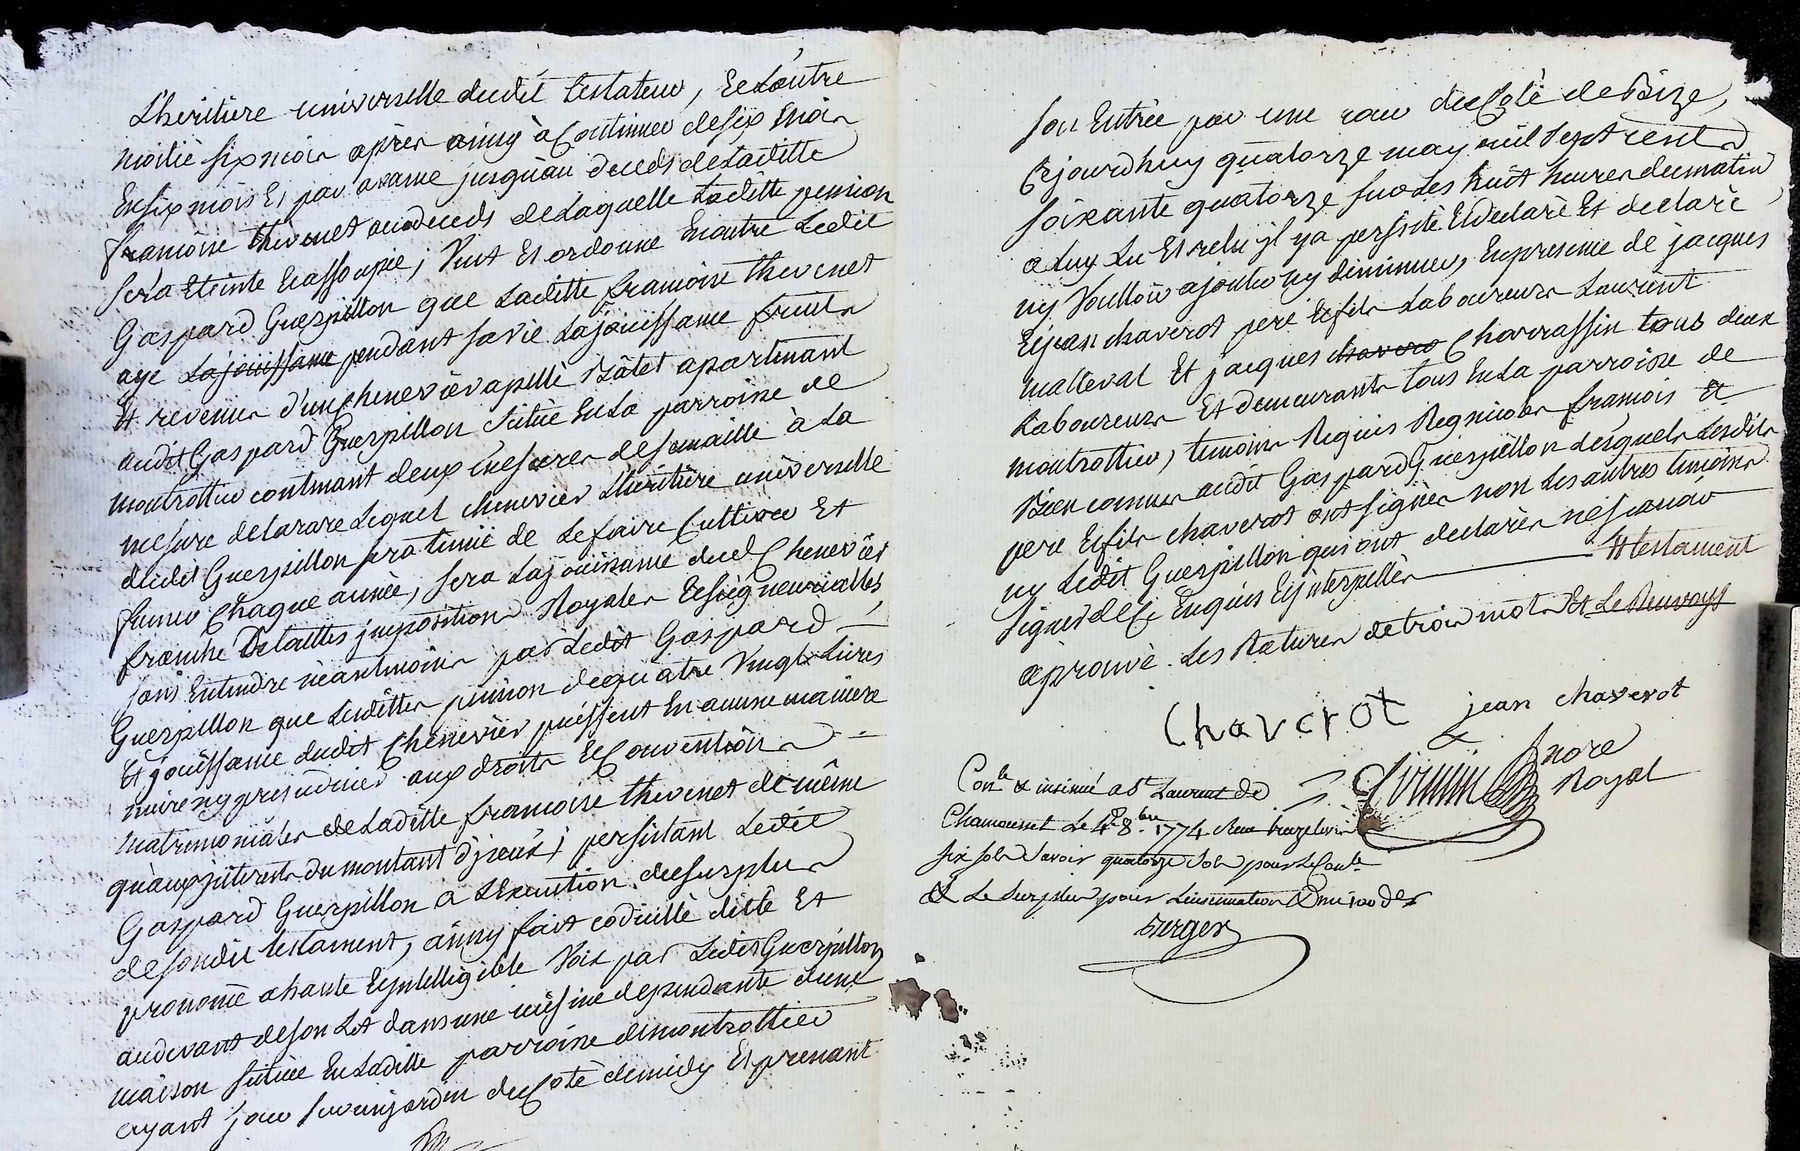 L'heritiere universelle dudit testateur, Et L'autre
moitié six mois après ainsy à Continuer de six mois
En six mois Et par avance jusqu'au deceds de Laditte
françoise thevenet au deceds de Laquelle Laditte pension
sera Eteinte Et assoupie; Veut Et ordonne Enoutre Ledit
Gaspard Guerpillon que Laditte françoise thevenet
aye La jouissance pendant sa vie La jouissance fruits
Et revenus d'un chenevier apellé Bâtet apartenant
audit Gaspard Guerpillon Scitué En La parroisse de
montrottier contenant deux mesures de semaille à La
mesure de Larare Lequel chenevier L'heritiere universelle
dudit Guerpillon sera tenue de Le faire Cultiver Et
fumer chaque année, sera La jouissance dud Chenevier
franche De tailles jmpositions Royales Et seigneurialles
sans Entendre néantmoins par Ledit Gaspard
Guerpillon que Lesdittes pension de quatre Vingts Livres
Et jouissance dudit Chenevier puissent En aucune maniere
nuire ny prejudicier aux droits Et Conventions
matrimoniales de Laditte françoise thevenet de même
qu'aux jnterets du montant d'jceux; persistant Ledit
Gaspard Guerpillon a L'Execution du surplus
de sondit testament, ainsy fait codicillé dicté Et
prononcé a haute Et jntelligible Voix par Ledit Guerpillon
au devant de son Lit dans une cuisine dependante d'une
maison scituée En Laditte parroisse de montrottier
ayant jour sur un jardin du Coté de midy Et prenant
son Entrée par une cour du Coté de Bize,
Cejourdhuy quatorze may mil sept cents
soixante quatorze sur Les huit heures du matin
a Luy Lu Et relu jl y a persisté Et declaré Et declaré
ny Vouloir ajouter ny diminuer, En presence de jacques
Et jean chaverot pere Et fils Laboureurs Laurent
malleval Et jacques chavero Charrassin tous deux
Laboureurs Et demeurants tous En La parroisse de
montrottier, temoins Requis Regnicoles françois Et
Bien connus audit Gaspard Guerpillon desquels Lesdits
pere Et fils chaverot ont signés non Les autres temoins
ny Ledit Guerpillon qui ont declarés ne sçavoir
signer de ce Enquis Et jnterpellés # testament
aprouvé. Les Ratures de trois mots Et Le Renvoys
Chaverot jean chaverot
nore
Royal
Conlé & insinué a St Laurent de
Chamousset Le 4e 8bre 1774 Reçu treze Livres
six sols Savoir quatorze sols pour Le Conle
& Le Surplus pour L'insinuation
Berger